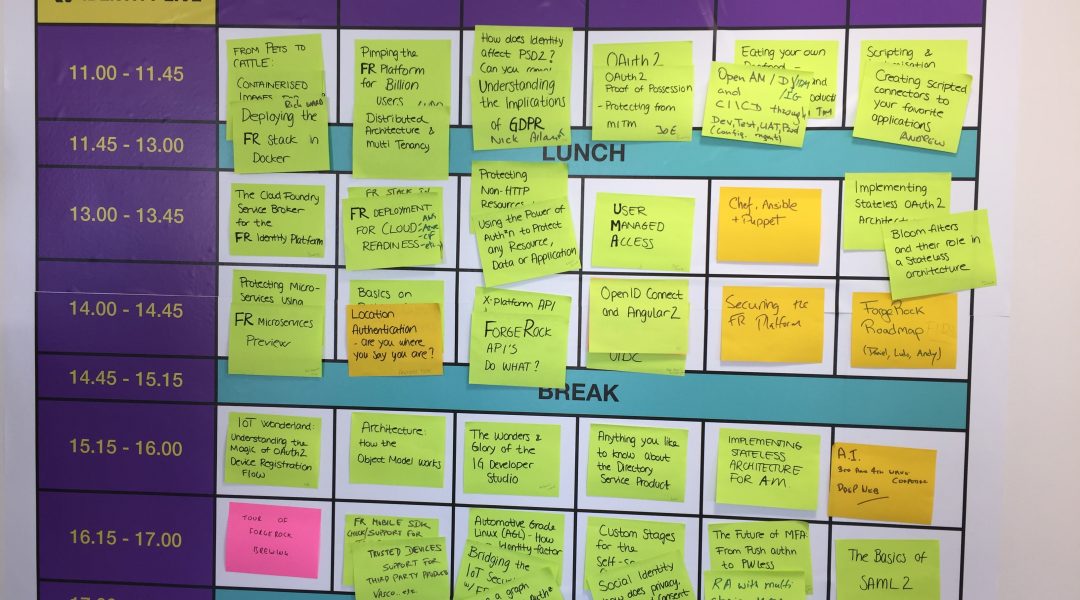 IDENTITY LIVE
11.00 - 11.45
FROM PETS TO
CATTLE:
CONTAINERISED
Deploying the
FR Stack in
Docker
Pimping the
FR Platform
for Billion
users
Distributed
Architecture &
Multi Tenancy
How does Identity
affect PSD2?
Can you
Understanding
the Implications
of GDPR
Nick
OAuth 2
OAUTH 2
Proof of Possession
- Protecting from
MITM
JOE
Eating your own
Open AM / DJ/IDM and
and /IG products
CI/CD through
Dev, Test, UAT, Prod
(Config. mgmt)
Scripting &
Creating scripted
connectors to
your favorite
applications
ANDREW
11.45 - 13.00
LUNCH
13.00 - 13.45
The Cloud Foundry
Service Broker
for the
FR Identity Platform
FR STACK in
FR DEPLOYMENT
FOR CLOUD:
READINESS
Protecting
Non-HTTP
Resources
Using the Power of
Auth*n to Protect
any Resource,
Data or Application
USER
MANAGED
ACCESS
Chef, Ansible
+ Puppet
Implementing
Stateless OAuth2
Bloom filters
and their role in
a stateless
architecture
14.00 - 14.45
Protecting Micro-
Services Using
FR Microservices
Preview
Basics on
Location
Authentication
- are you where
you say you are?
X-Platform API
FORGEROCK
API'S
DO WHAT?
OpenID Connect
and Angular2
OIDC
Securing the
FR Platform
ForgeRock
Roadmap
(Daniel, Ludo, Andy)
14.45 - 15.15
BREAK
15.15 - 16.00
IoT Wonderland:
Understanding the
Magic of OAuth2
Device Registration
Flow
Architecture:
How the
Object Model works
The Wonders &
Glory of the
IG Developer
Studio
Anything you like
to know about
the Directory
Service Product
IMPLEMENTING
STATELESS
ARCHITECTURE
FOR AM.
A.I.
3RD AND 4TH WAVE
DEEP WEB
16.15 - 17.00
TOUR OF
FORGEROCK
BREWING
FR MOBILE SDK
CHECK/SUPPORT FOR
TRUSTED DEVICES
SUPPORT FOR
THIRD PARTY PRODUCTS
VASCO.. etc.
Automotive Grade
Linux (AGL) - How
Identity factor
Bridging the
IoT
a graph
Custom Stages
for the
Social Identity
How does privacy
The Future of MFA
From Push authn
to PWless
RA with multi
The Basics of
SAML 2